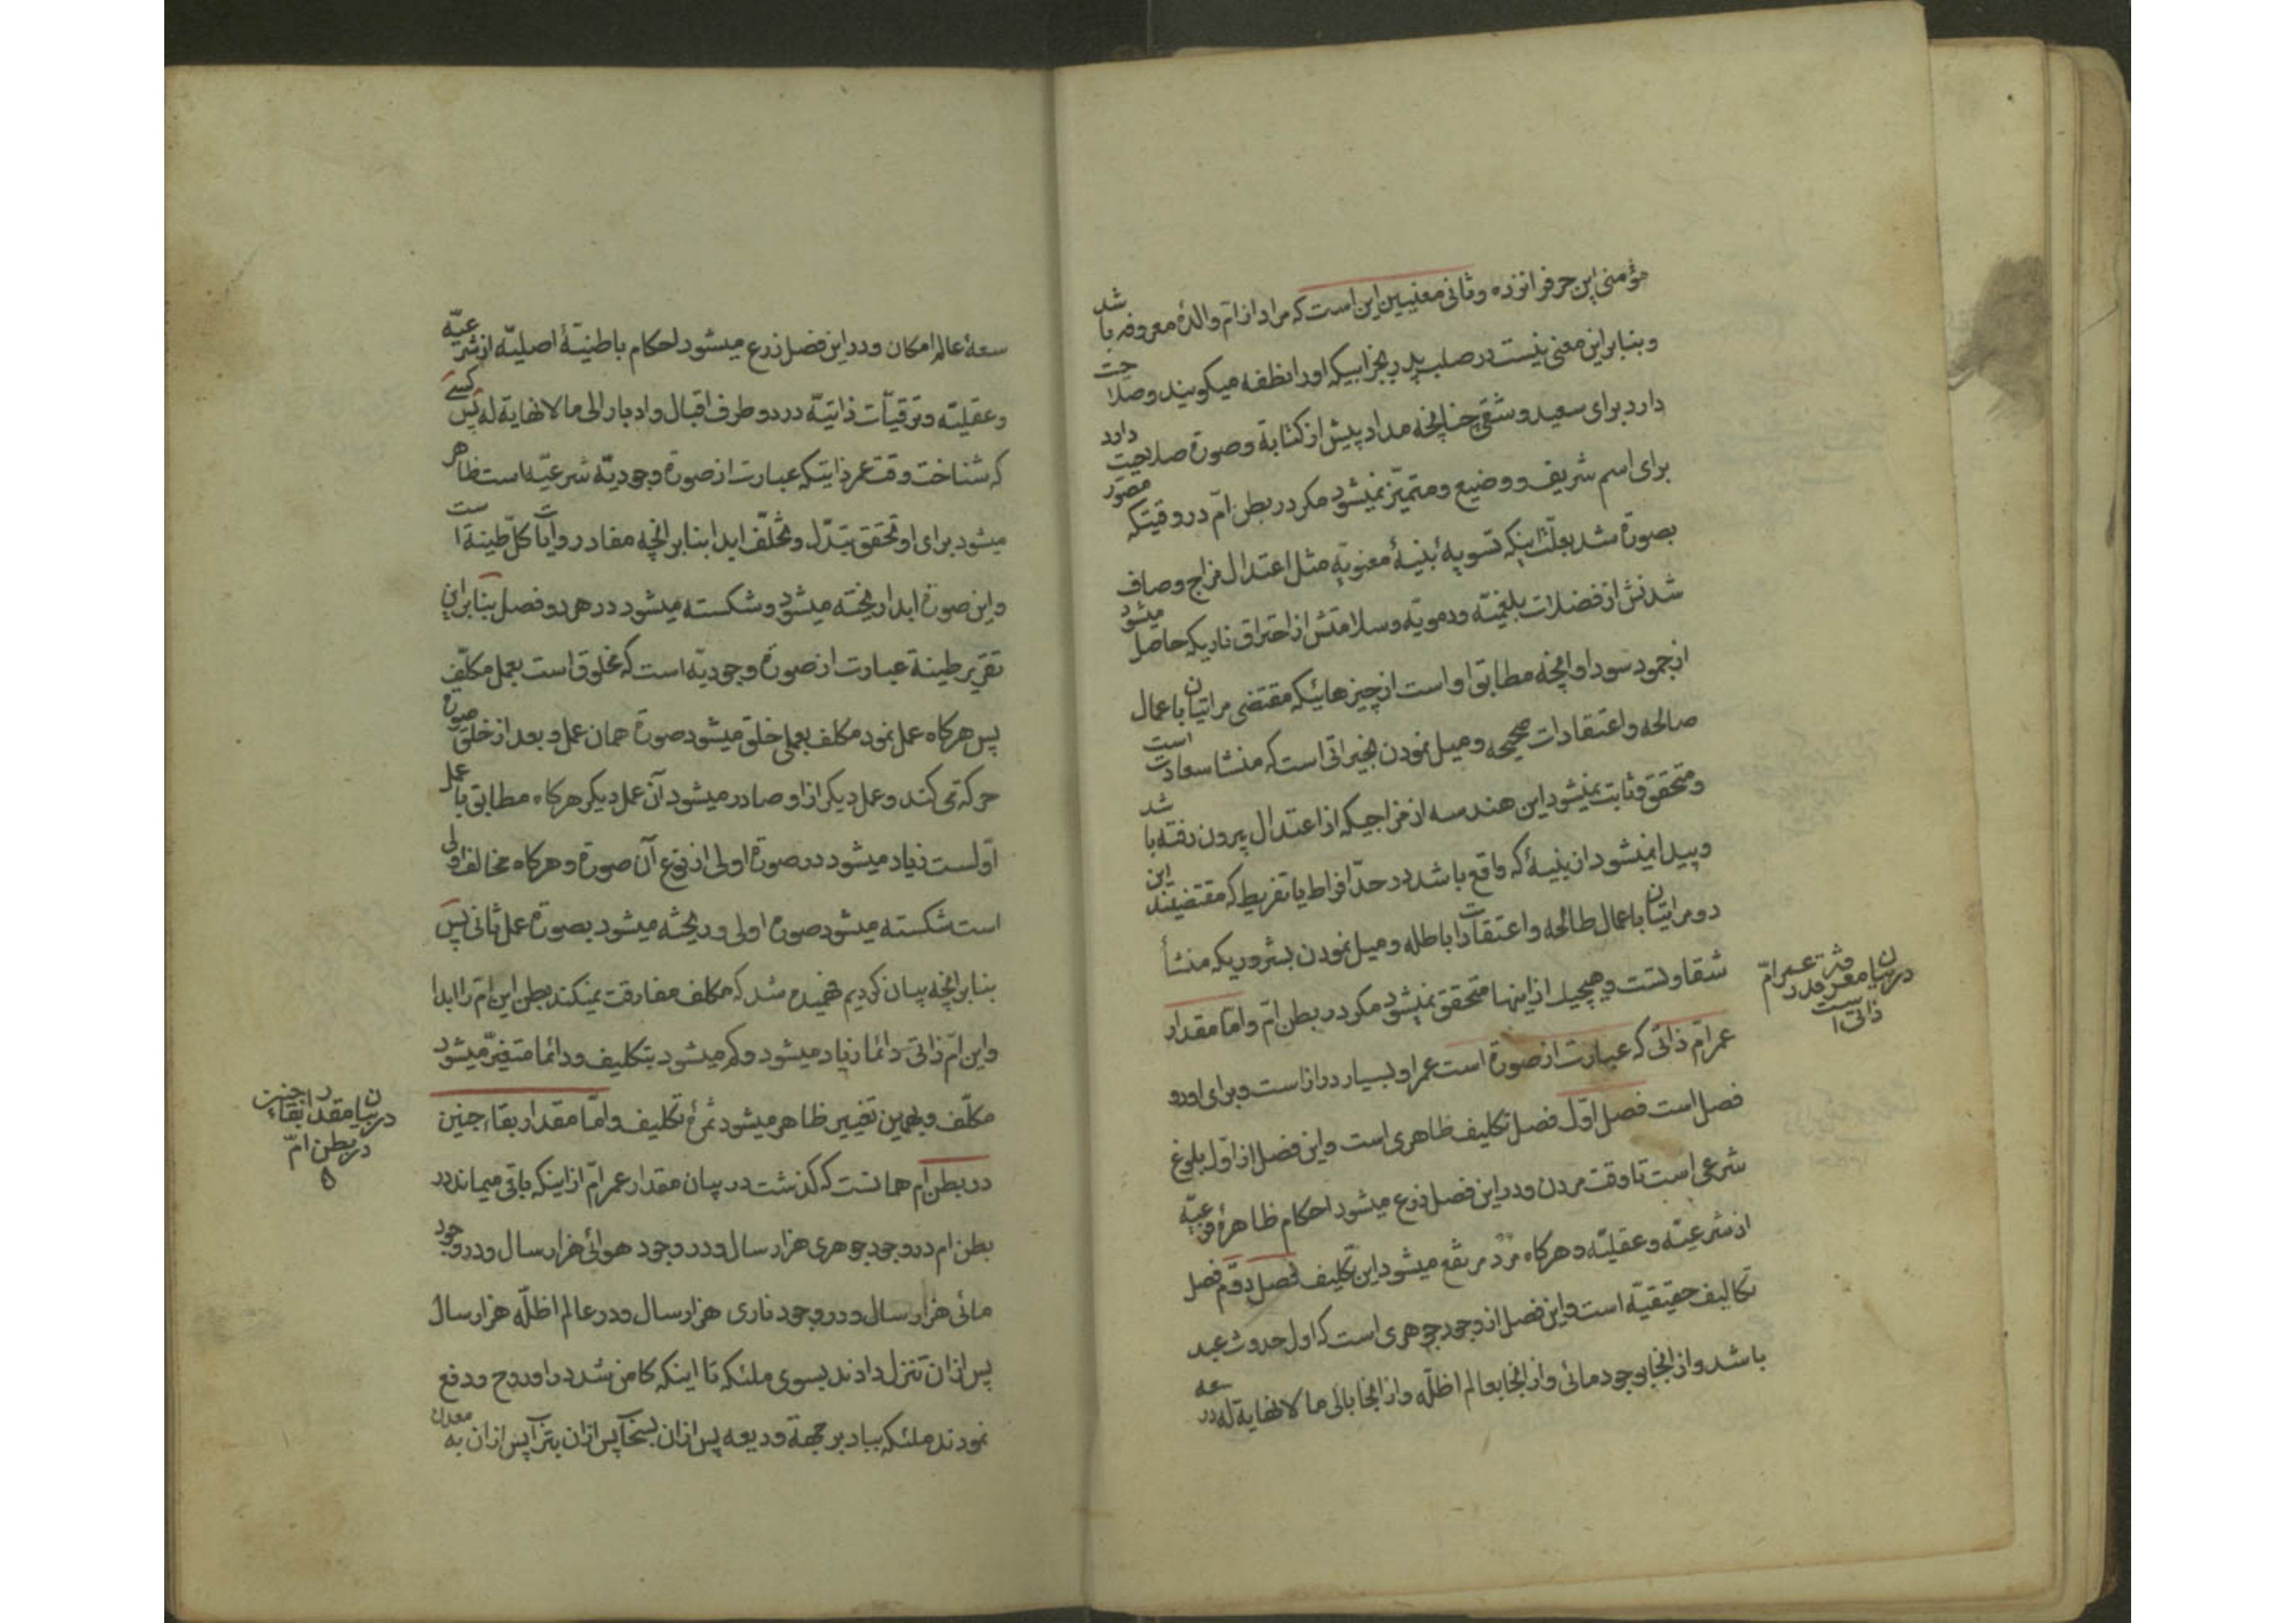 مؤمنی این حرف را نزده و ثانی معنیین این است که مراد از ام والدهٔ معروفه باشد
و بنابر این معنی نیست در صلب پدر بجز آبیکه او را نطفه میگویند و صلاحیت
دارد برای سعید و شقی چنانچه مداد پیش از کتابة و صورة صلاحیت دارد
برای اسم شریف و وضیع و متمیّز نمیشود مکر در بطن امّ در وقتیکه مصوّر
بصورة شد بعلّت اینکه تسویهٔ بنیهٔ معنویّه مثل اعتدال مزاج و صاف
شدنش از فضلات بلغمیّه و دمویّه و سلامتش از احتراق ناریکه حاصل میشود
از جمود سودا و انچه مطابق او است از چیزهائیکه مقتضی مراتیان باعمال
صالحه و اعتقادات صحیحه و میل نمودن بخیراتی است که منشا سعادت است
و متحقق و ثابت نمیشود این هندسه از مزاجیکه از اعتدال بیرون رفته باشد
و پیدا نمیشود ان بنیهٔ که واقع باشد در حدّ افراط یا تفریط که مقتضیند این
دو مراتیان باعمال طالحه و اعتقادات باطله و میل نمودن بشروریکه منشأ
شقاوتست و هیچیک از اینها متحقق نمیشود مکر در بطن امّ و امّا مقدار
عمر امّ ذاتی که عبارت از صورة است عمر او بسیار دراز است و برای او دو
فصل است فصل اوّل فصل تکلیف ظاهری است و این فصل از اوّل بلوغ
شرعی است تا وقت مردن و در این فصل زرع میشود احکام ظاهرهٔ فرعیّه
از شرعیّه و عقلیّه و هرکاه مرد مرتفع میشود این تکلیف فصل دوّم فصل
تکالیف حقیقیّه است و این فصل از وجود جوهری است که اول حدوث عبد
باشد و از انجا بوجود مائی و از انجا بعالم اظلّه و از انجا بالی ما لا نهایة له در سعه
در بیان معرفة قدر عمر امّ
ذاتی است
سعهٔ عالم امکان و در این فصل زرع میشود احکام باطنیّهٔ اصلیّه از شرعیّه
و عقلیّه و ترقیّات ذاتیّه در دو طرف اقبال و ادبار الی ما لا نهایة له پس کسی
که شناخت وقت عمر ذاتیکه عبارت از صورة وجودیّه شرعیّه است ظاهر
میشود برای او تحقق تبدّل و تخلّف ابدا بنابر انچه مفاد روایات کلّ طینة است
و این صورة ابدا ریخته میشود و شکسته میشود در هر دو فصل بنابر این
تقریر طینة عبارت از صورة وجودیّه است که مخلوق است بعمل مکلّف
پس هرکاه عمل نمود مکلف بعملی خلق میشود صورة همان عمل و بعد از خلق صورة
حرکة می کند و عمل دیکر از او صادر میشود آن عمل دیکر هرکاه مطابق با عمل
اوّلست زیاد میشود در صورة اولی از نوع آن صورة و هرکاه مخالف اولی
است شکسته میشود صورة اولی و ریخته میشود بصورة عمل ثانی پس
بنابر انچه بیان کردیم فهمیده شد که مکلف مفارقت نمیکند بطن این امّ را ابدا
و این امّ ذاتی دائما زیاد میشود و کم میشود بتکلیف و دائما متغیّر میشود
مکلّف و بهمین تغییر ظاهر میشود ثمرهٔ تکلیف و امّا مقدار بقاء جنین
در بطن ام همانست که کذشت در بیان مقدار عمر امّ از اینکه باقی میماند در
بطن ام در وجود جوهری هزار سال و در وجود هوائی هزار سال و در وجود
مائی هزار سال و در وجود ناری هزار سال و در عالم اظلّه هزار سال
پس از ان تنزل دادند بسوی ملئکه تا اینکه کامن شد در او روح و دفع
نمودند ملئکه بباد بر جهة ودیعه پس از ان بسحاب پس از ان بتراب پس از ان به معدن
در بیان مقدار بقاء جنین
در بطن امّ
۵